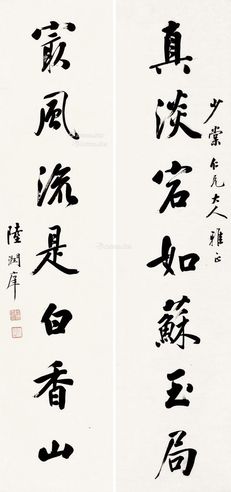 少棠仁兄大人雅正
真淡宕如蘇玉局
最風流是白香山
陸潤庠